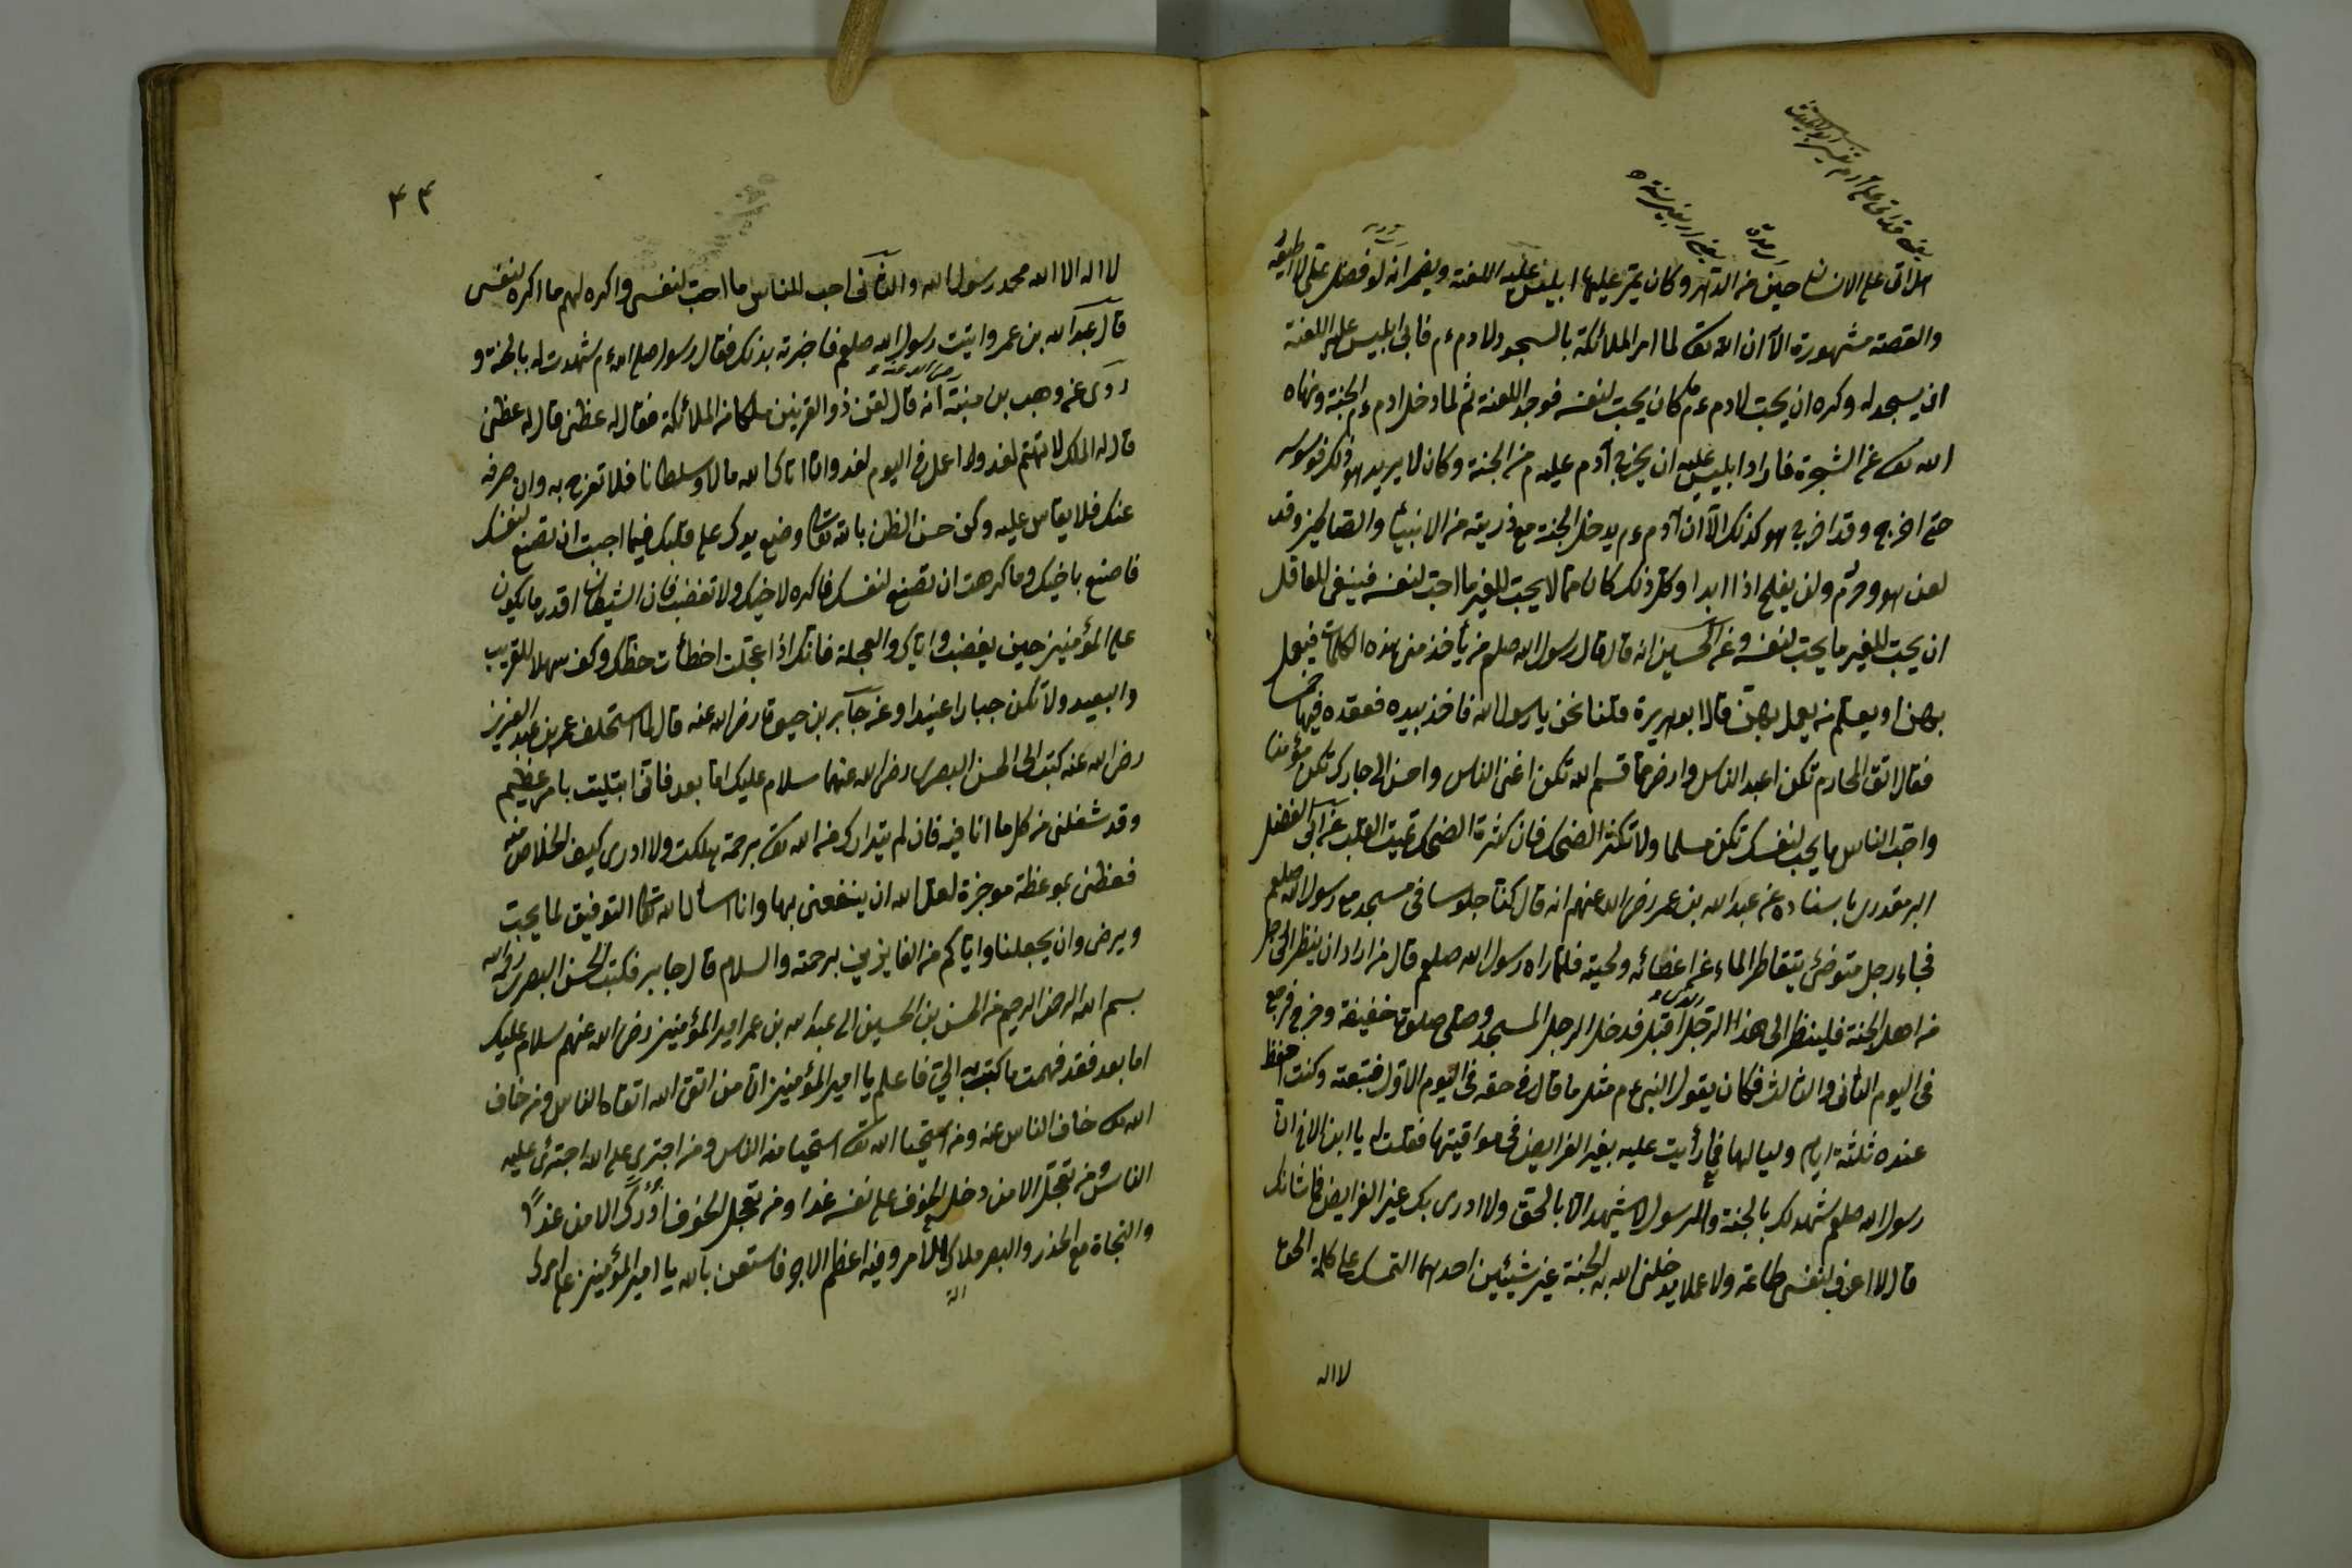 هل اتى على الانسان حين من الدهر وكان يمر عليها ابليس عليه اللعنة ويضمر انه لو فضل على لا اطيعه
والقصة مشهورة الا ان الله تعا لما امر الملائكة بالسجود لادم ءم فابى ابليس عليه اللعنة
ان يسجد له وكره ان يحب لادم ءم ما كان يحب لنفسه فوجد اللعنة ثم لما دخل ادم ءم الجنة ونهاه
الله تعا عن الشجرة فاراد ابليس عليه ان يخرج آدم عليه م من الجنة وكان لا يريد هو ذلك فوسوسه
حتى اخرج وقد اخرج هو كذلك الا ان آدم ءم يدخل الجنة مع ذريته من الانبيآء والصالحين وقد
لعن هو وحرم ولن يفلح اذا ابدا وكل ذلك كان مما لا يحب للغير ما احب لنفسه فينبغى للعاقل
ان يحب للغير ما يحب لنفسه وعن الحسين انه قال قال رسول الله صلعم من يأخذ منى هذه الكلمات فيعمل
بهن او يعلم من يعمل بهن قال ابو هريرة قلنا نحن يا رسول الله فاخذ بيده فعقده فيها خمسا
فقال اتق المحارم تكن اعبد الناس وارض بما قسم الله تكن اغنى الناس واحسن الى جارك تكن مؤمنا
واحب الناس ما يحب لنفسك تكن مسلما ولا تكثر الضحك فان كثرة الضحك تميت القلب عن ابى الفضل
البرمقدرى باسناده عن عبد الله بن عمر رضى الله عنهم انه قال كنا جلوسا فى مسجد مع رسول الله صلعم
فجاء رجل متوضئ يتقاطر الماء عن اعضائه ولحيته فلما راه رسول الله صلعم قال من اراد ان ينظر الى رجل
من اهل الجنة فلينظر الى هذا الرجل اقبل فدخل الرجل المسجد وصلى صلوة خفيفة وخرج فرجع
فى اليوم الثانى والثالث فكان يقول النبى ءم مثل ما قال فى حقه فى اليوم الاول فتبعته وكنت احفظ
عنده ثلثة ايام ولياليها فما رأيت عليه بغير الفرايض فى مواقيتها فقلت له يا ابن الاخ ان
رسول الله صلعم شهد لك بالجنة والرسول لا يشهد الا بالحق ولا ادرى بك غير الفرايض فما شانك
قال لا اعرف لنفسى طاعة ولا عملا يدخلنى الله به الجنة غير شيئين احدهما التمسك على كلمة الحق
لا اله
۴۴
لا اله الا الله محمد رسول الله والثانى احب للناس ما احب لنفسى واكره لهم ما اكره لنفسى
قال عبد الله بن عمر واتيت رسول الله صلعم فاخبرته بذلك فقال رسول صلى الله ءم شهدت له بالجنة و
روى عن وهب بن منبه انه قال لقى ذو القرنين ملكا من الملائكة فقال له عظنى قال له عظنى
قال له الملك لا تهتم لغد ولا اعمل فى اليوم لغد وان اتاك الله مالا وسلطانا فلا تفرح به وان صرفه
عنك فلا يقاس عليه وكن حسن الظن بالله تعا وضع يدك على قلبك فيما احببت ان تصنع لنفسك
فاصنع باخيك وما كرهت ان تصنع لنفسك فاكره لاخيك ولا تغضب فان الشيطان اقدر ما يكون
على المؤمنين حين يغضب واياك والعجلة فانك اذا عجلت اخطأت حظك وكن سهلا للقريب
والبعيد ولا تكن جبارا عنيدا وعن جابر بن حيوة رضى الله عنه قال لما استخلف عمر بن عبد العزيز
رضى الله عنه كتب الى الحسن البصرى رضى الله عنهما سلام عليك اما بعد فانى ابتليت بامر عظيم
وقد شغلنى من كل ما انا فيه فان لم يتدارك من الله تعا برحمة هلكت ولا ادرى كيف الخلاص منه
فعظنى بموعظة موجزة لعل الله ان ينفعنى بها وانا اسال الله تعا التوفيق لما يحب
ويرضى وان يجعلنا واياكم من الفايزين برحمته والسلام قال جابر فكتب الحسن البصرى رحمه الله
بسم الله الرحمن الرحيم من الحسن بن الحسين الى عبد الله بن عمر امير المؤمنين رضى الله عنهم سلام عليك
اما بعد فقد فهمت ما كتبت به الىّ فاعلم يا امير المؤمنين ان من اتقى الله اتقاه الناس ومن خاف
الله تعا خاف الناس عنه ومن استحيا الله تعا استحيا منه الناس ومن اجترى على الله اجترئ عليه
الناس ومن تعجل الامن دخل الخوف على نفسه غدا ومن تعجل الخوف ادرك الامن غدًا
والنجاة مع الحذر والبصر ملاك الامر وفيه اعظم الاجر فاستعن بالله يا امير المؤمنين على امرك